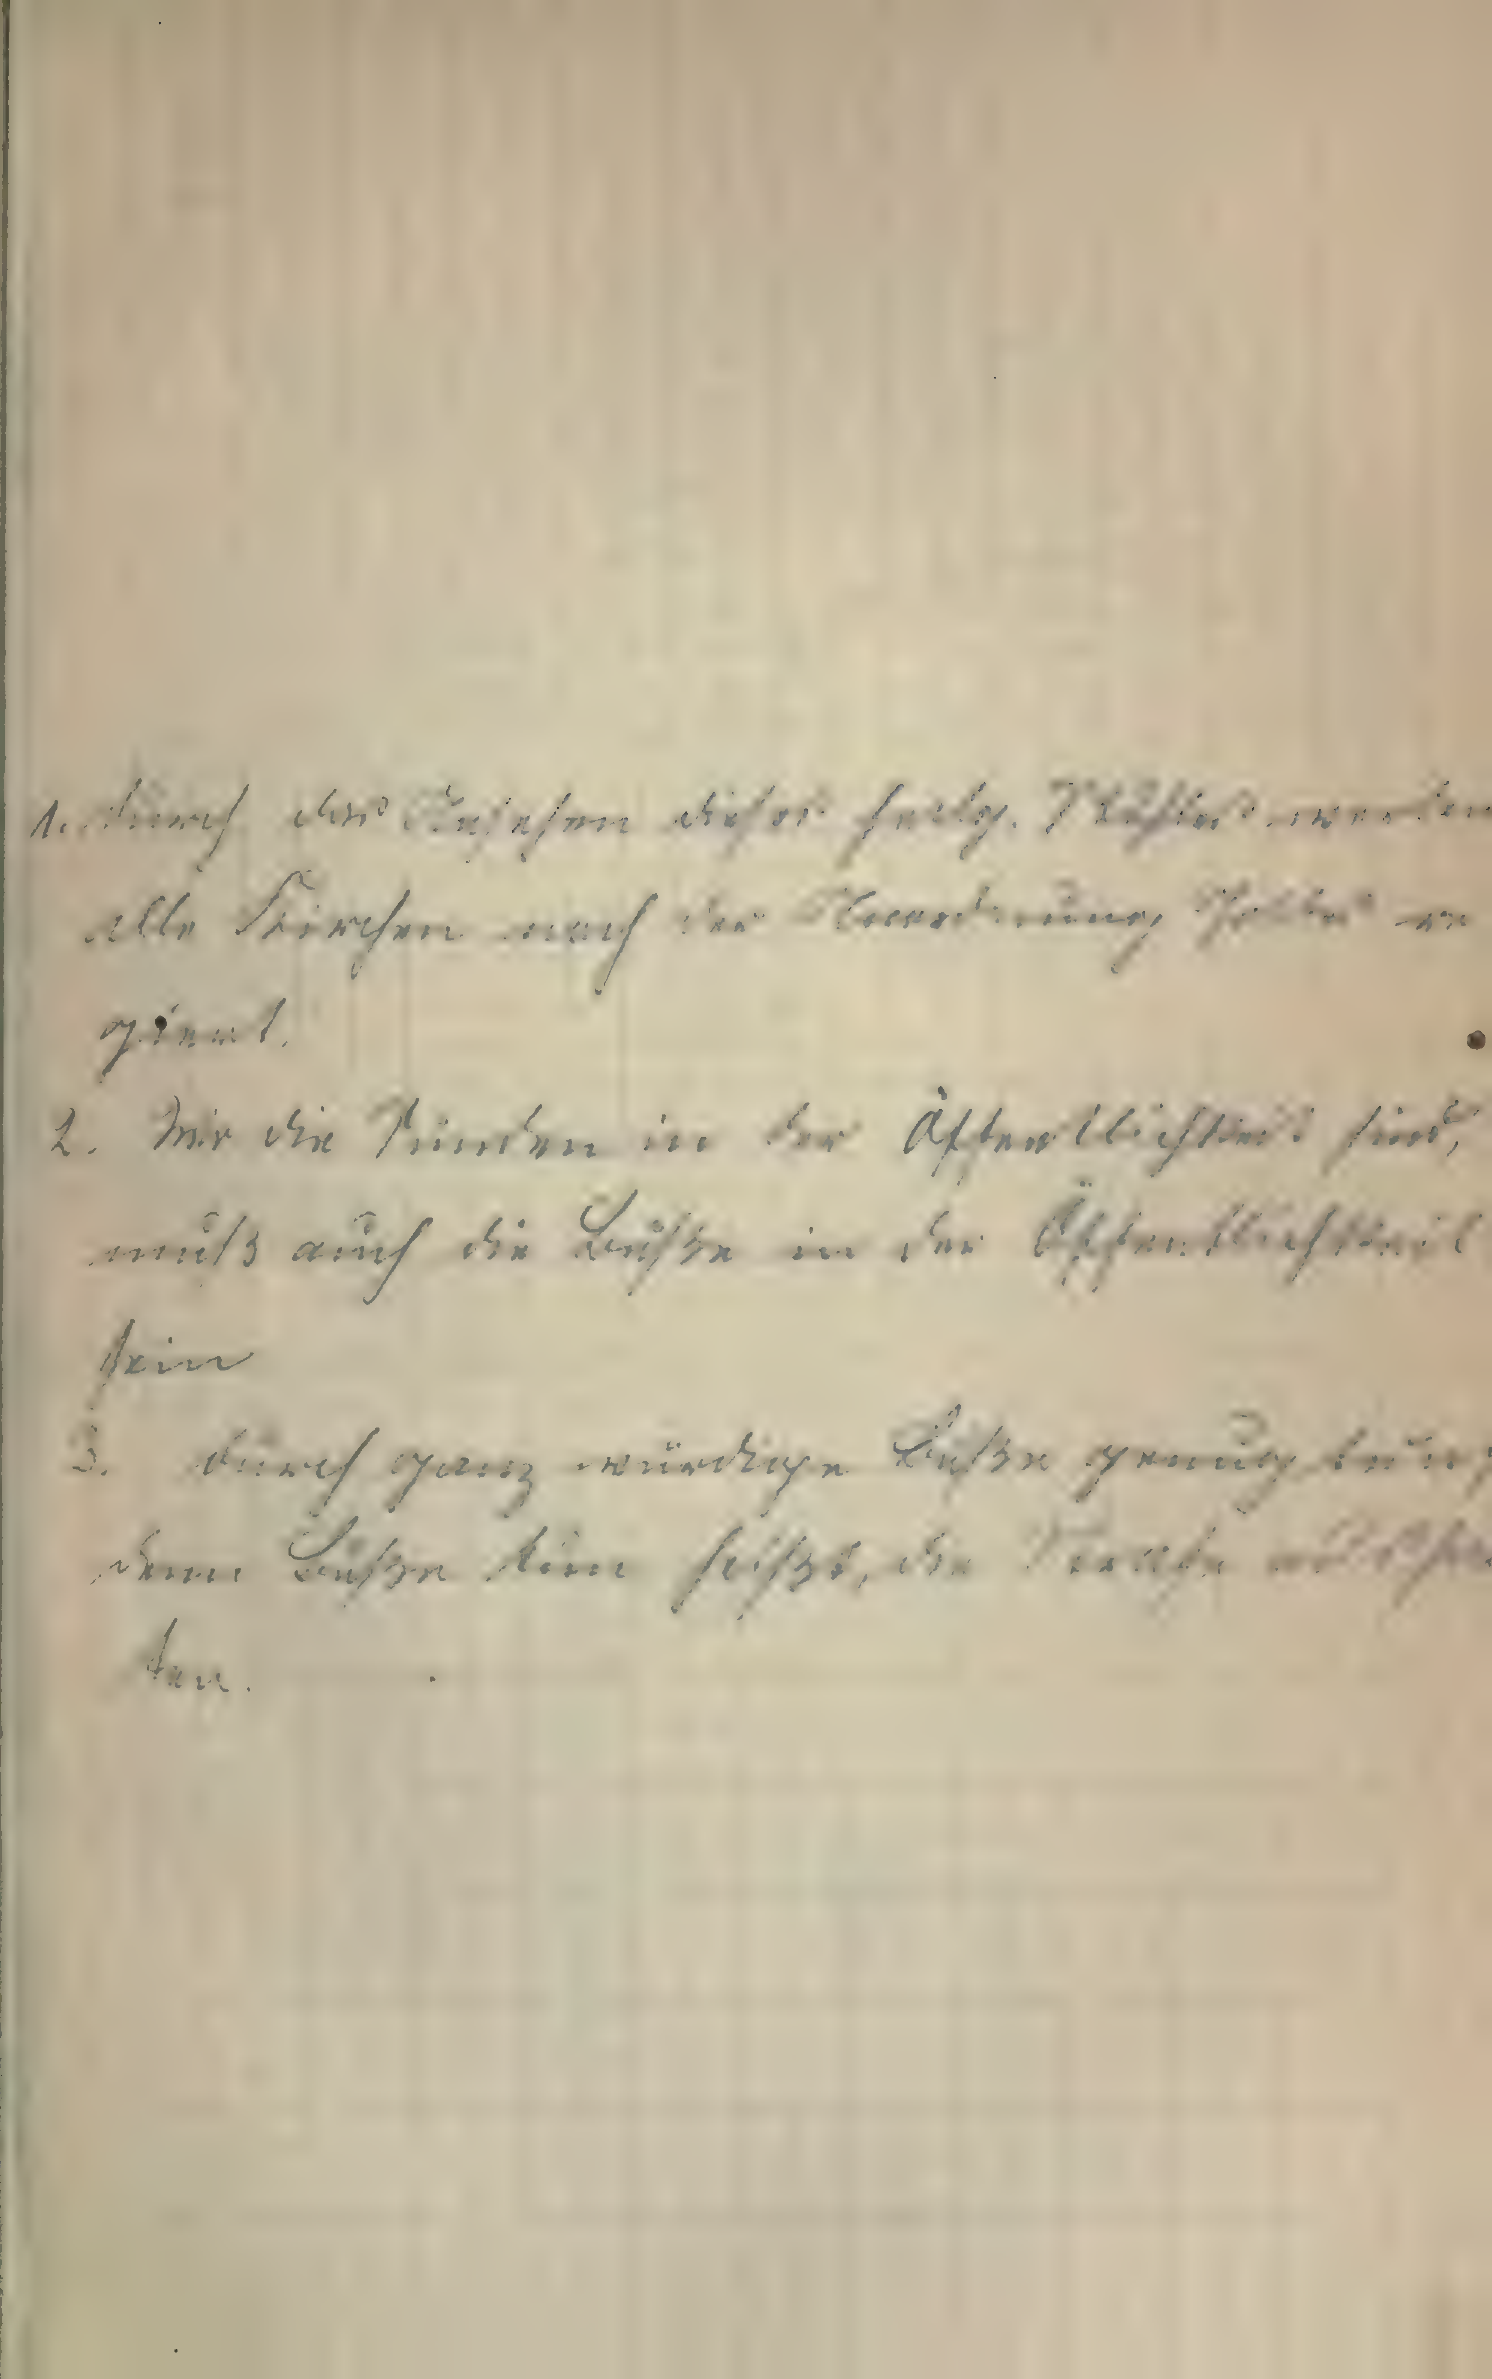 1. durch das Ansehen dieses heilg. Stuhles werden
alle Kirchen nach der Anordnung Gottes re
giert.
2. Wie die Sünden in der Öffentlichkeit sind,
muß auch die Buße in der Öffentlichkeit
sein
3. durch ganz würdige Buße genug tun,
denn Buße tun heißt, die
ten.